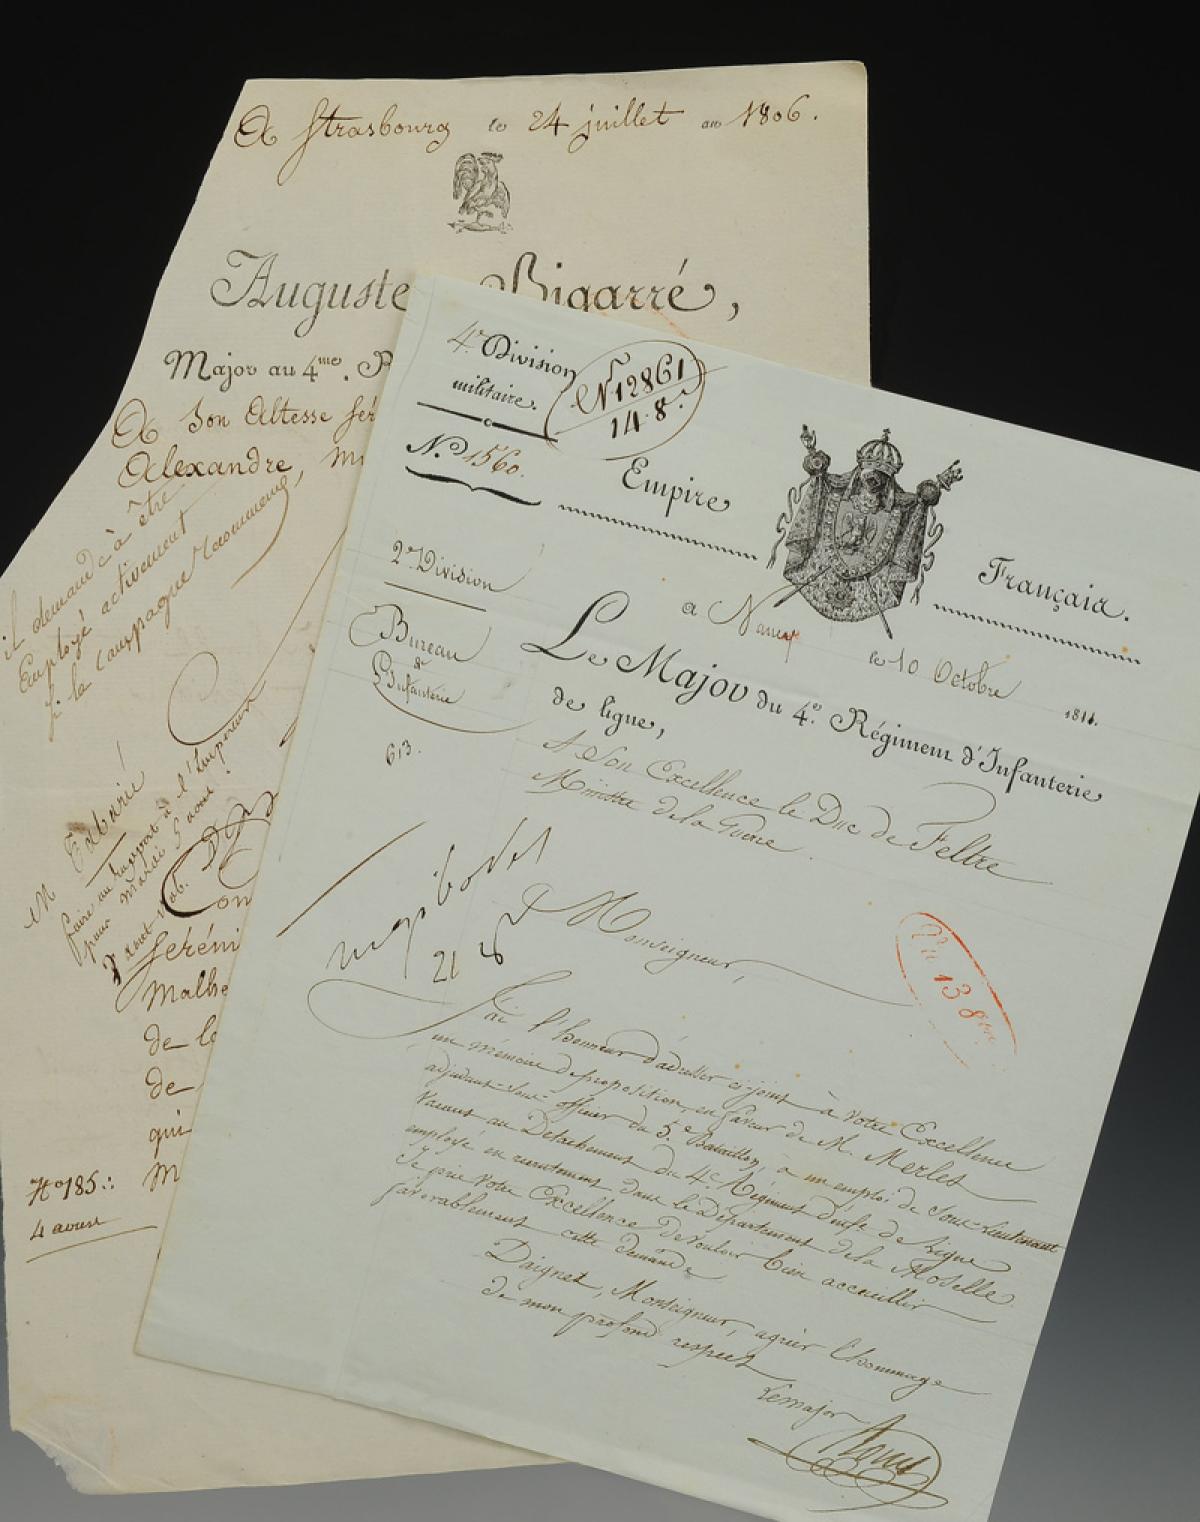 A Strasbourg le 24 juillet an 1806.
Auguste Bigarré,
Major au 4me. R
A Son Altesse Sér
Alexandre, M
il demande à être
Employé activement
si la campagne recommence,
faire un rapport à l'Empereur
pour Mardi 5 aout
Con
Séréni
Malhe
de
de
qui
M
No 185:
4 avril
4e. Division
militaire.
N 12861
14. 8.
N.o 1560.
Empire Français.
2e. Division
Bureau
de
l'Infanterie
613.
a Nancy le 10 Octobre 1811.
Le Major du 4e. Régiment d'Infanterie
de ligne,
A Son Excellence le Duc de Feltre
Ministre de la Guerre.
21 8
Monseigneur,
13 8bre
J'ai l'honneur d'adresser ci-joint à Votre Excellence
un mémoire de proposition, en faveur de M. Merlet
adjudant-Sous-officier du 5e. Bataillon, à un emploi de Sous-lieutenant
vacant au Détachement du 4e. Régiment d'infie de Ligne
employé en recrutement dans le Département de la Moselle.
Je prie Votre Excellence de vouloir bien accueillir
favorablement cette demande
Daignez, Monseigneur, agréer l'hommage
de mon profond respect
Le major